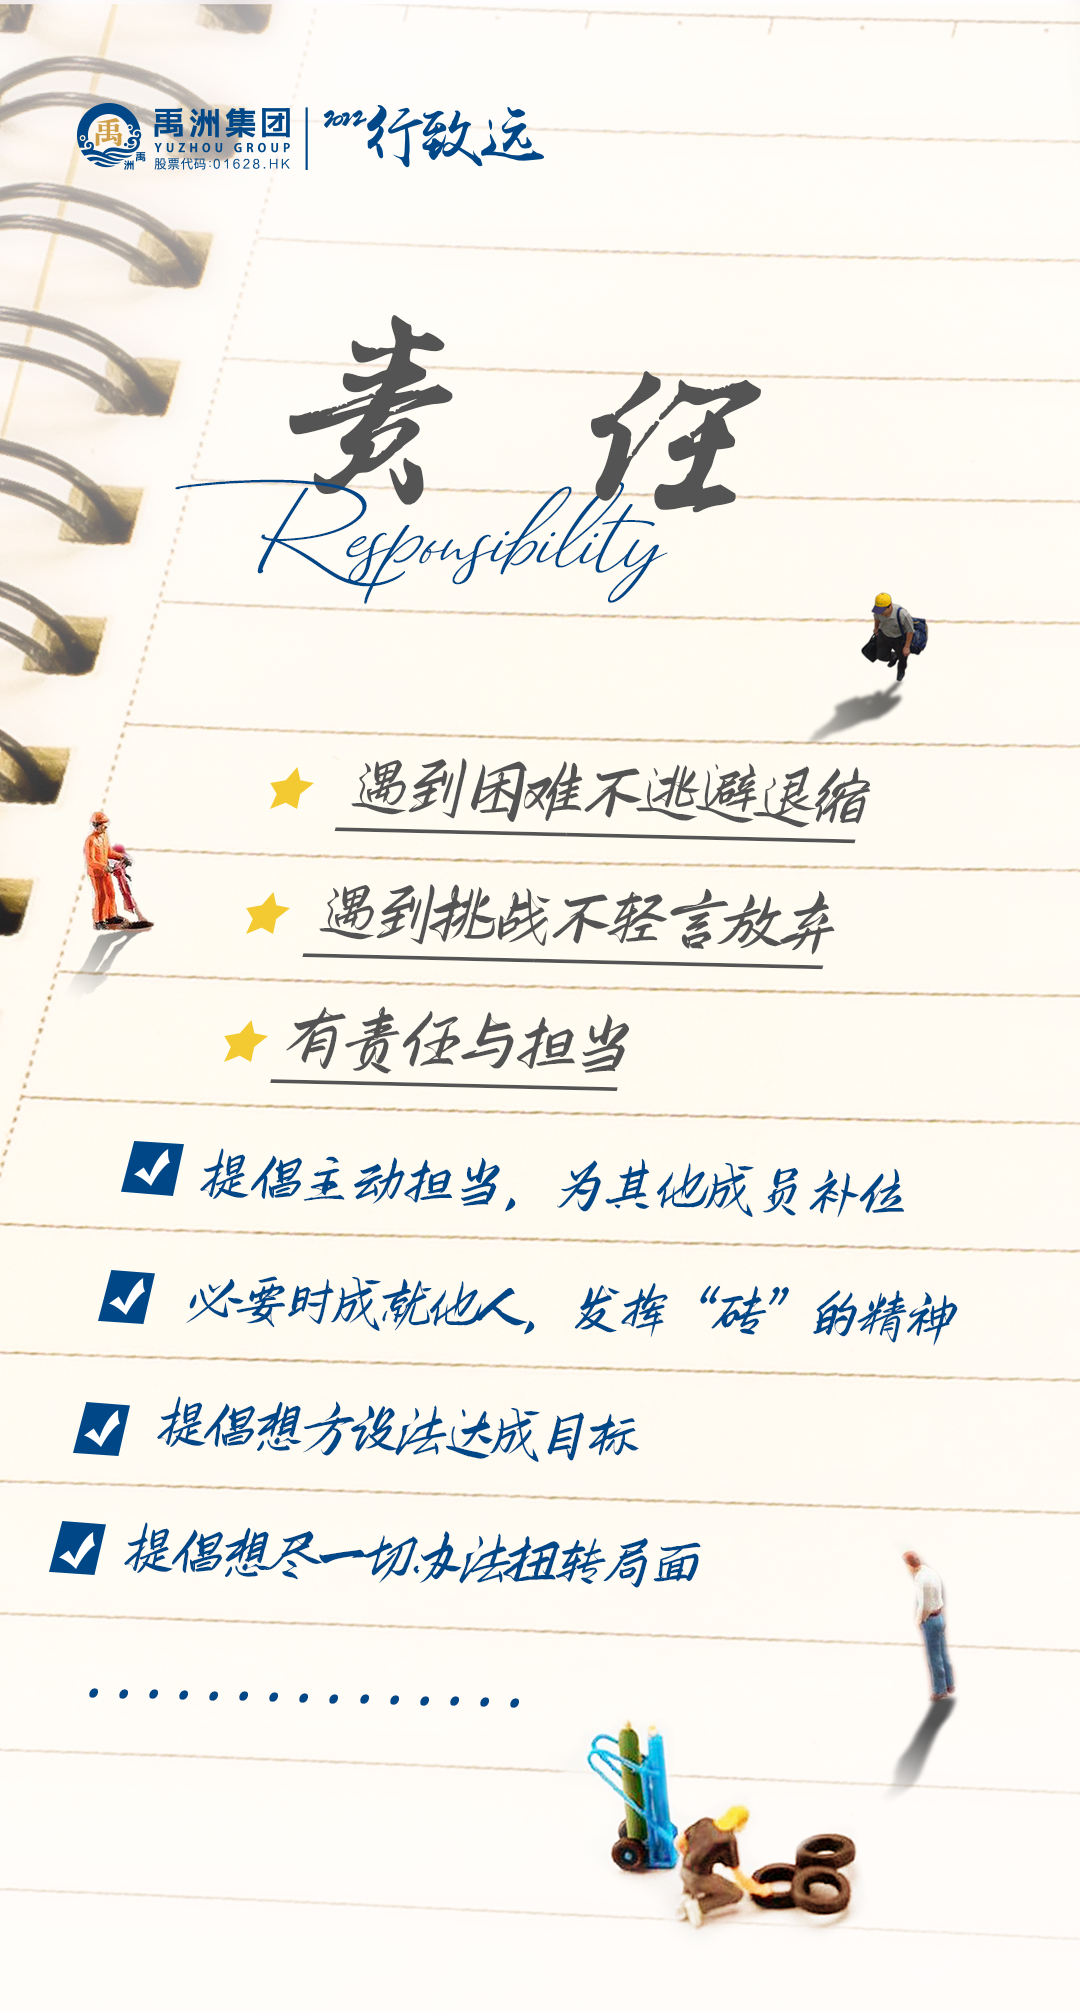 禹洲集团
YUZHOU GROUP
股票代码:01628.HK
禹
禹
洲
2022行致远
责任
Responsibility
遇到困难不逃避退缩
遇到挑战不轻言放弃
有责任与担当
提倡主动担当，为其他成员补位
必要时成就他人，发挥“砖”的精神
提倡想方设法达成目标
提倡想尽一切办法扭转局面
················